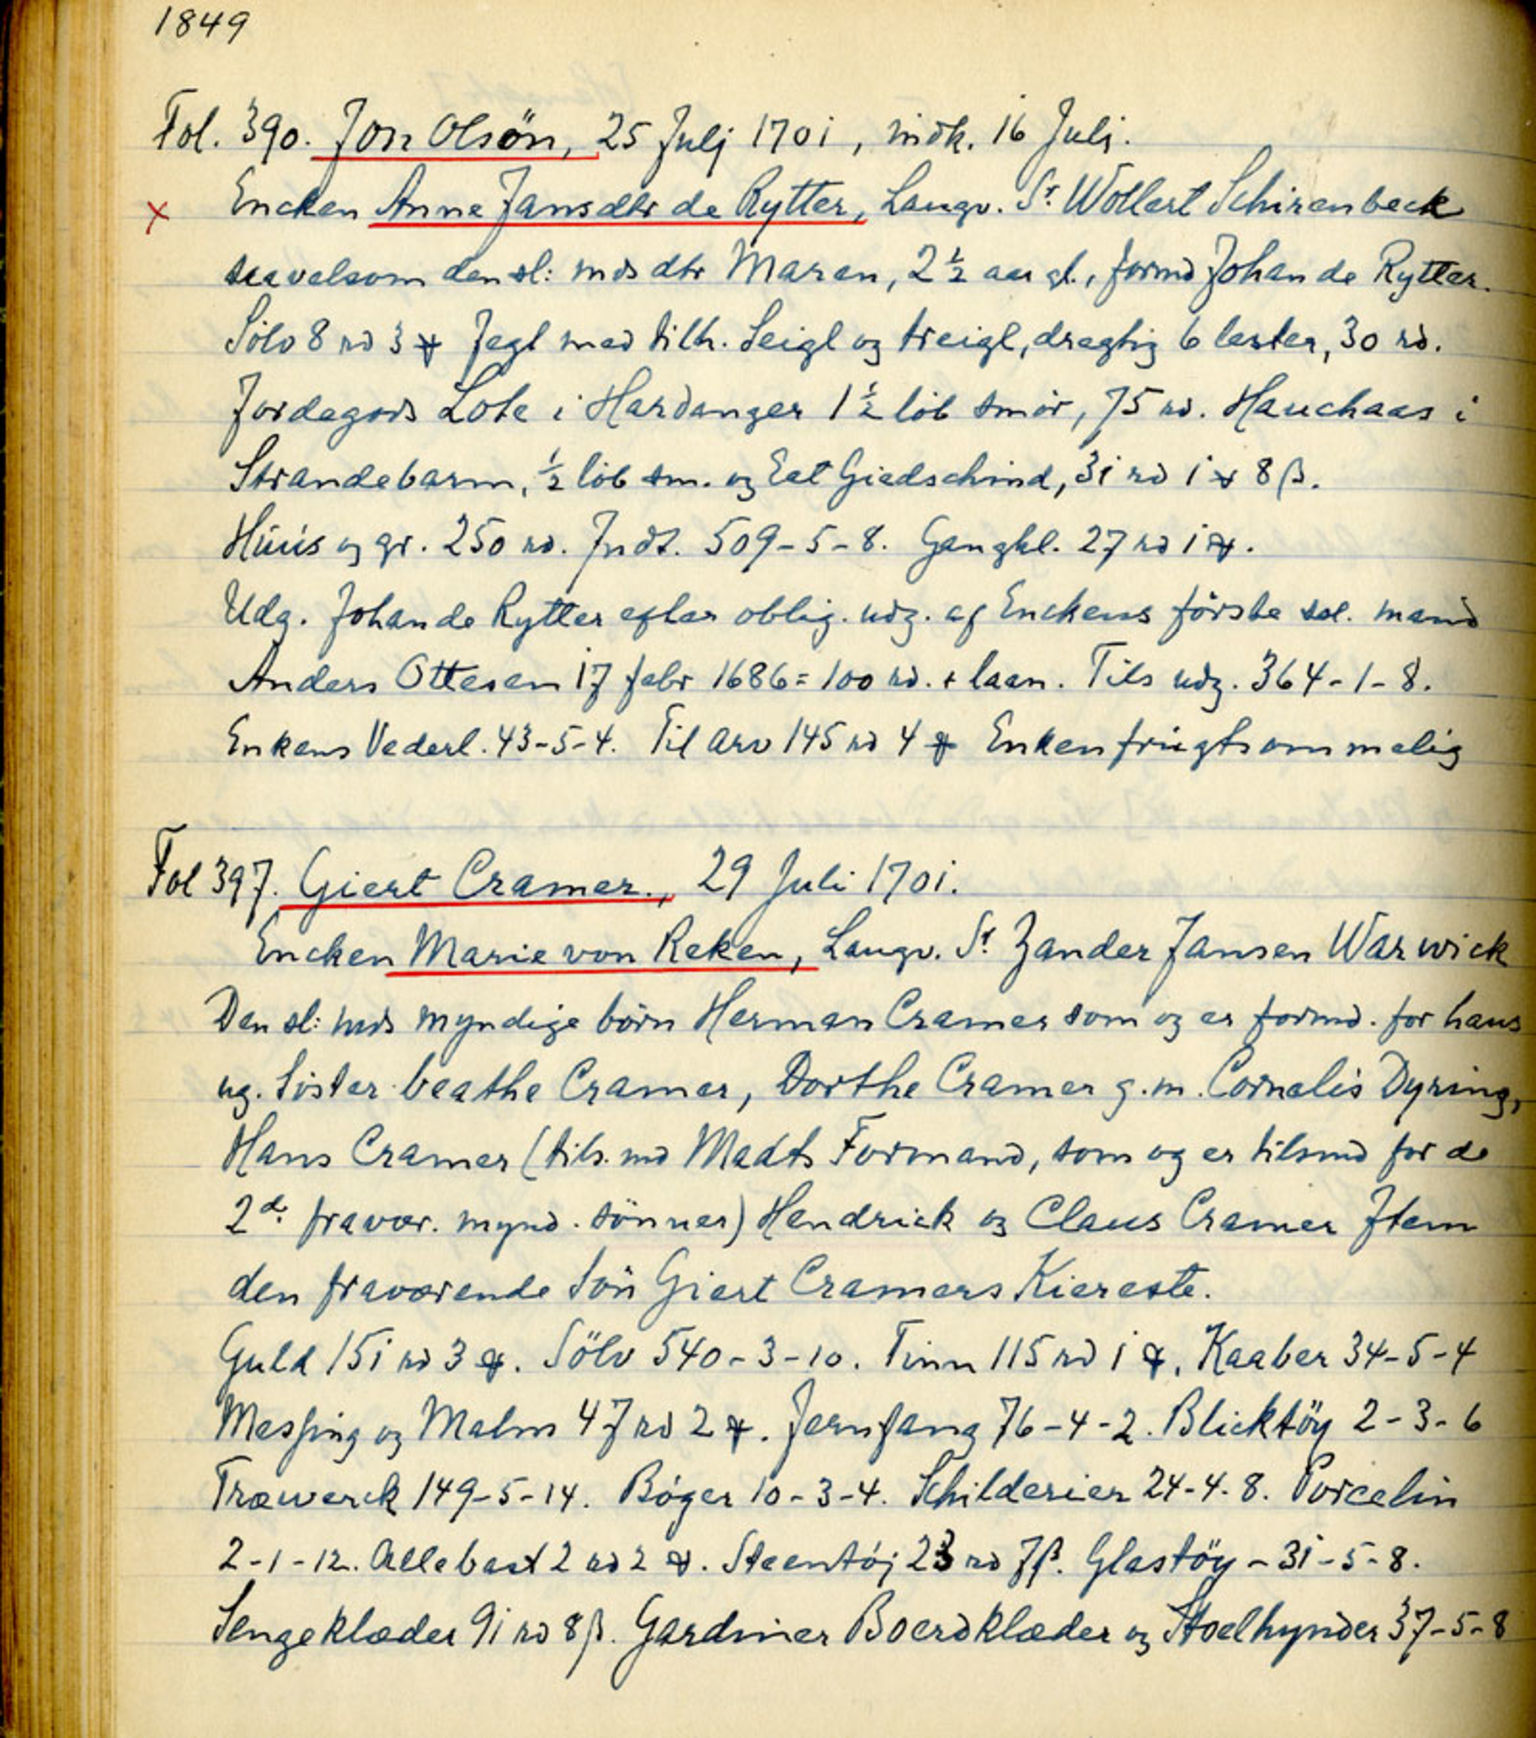 1849
Fol. 390. Jon Olsön, 25 Julj 1701, indk. 16 Juli.
x Encken Anne Jansdtr de Rytter, Laugv. Sr Wollert Schirenbeck
saavelsom den sl: mds dtr Maren, 2 1/2 aar gl., formd Johan de Rytter.
Sölv 8 rd 3 ⚹ Jegt med tilh. Seigl og treigl, dregtig 6 lester, 30 rd.
Jordegods Lote i Hardanger 1 1/2 löb smör, 75 rd. Hauchaas i
Strandebarm, 1/2 löb sm. og Eet Giedschind, 31 rd 1 ⚹ 8 β.
Húús og gr. 250 rd. Indt. 509-5-8. Gangkl. 27 rd 1 ⚹.
Udg. Johan de Rytter efter oblig. udg. af Enckens förste sal. mand
Anders Ottesen 17 febr 1686 = 100 rd. + laan. Tils udg. 364-1-8.
Enkens Vederl. 43-5-4. Til arv 145 rd 4 ⚹ Enken frúgtsommelig
Fol 397. Giert Cramer., 29 Juli 1701.
Encken Marie von Reken, Laugv. Sr Zander Jansen Warwick
Den sl: mds myndige börn Herman Cramer som og er formd. for hans
ug. Söster beathe Cramer, Dorthe Cramer g.m. Cornelis Dyring,
Hans Cramer (tils. md Madts Formand, som og er tilsmd for de
2de fravær. mynd. sönner) Hendrick og Claus Cramer Item
den fraværende Sön Giert Cramers Kiereste.
Guld 151 rd 3 ⚹. Sölv 540-3-10. Tinn 115 rd 1 ⚹. Kaaber 34-5-4
Messing og Malm 47 rd 2 ⚹. Jernfang 76-4-2. Blicktöy 2-3-6
Træwerck 149-5-14. Böger 10-3-4. Schilderier 24-4-8. Porcelin
2-1-12. Allebast 2 rd 2 ⚹. Steentöj 23 rd 7 β. Glastöy - 31-5-8.
Sengeklæder 91 rd 8 β. Gardiner Boerdklæder og Stoelhynder 37-5-8